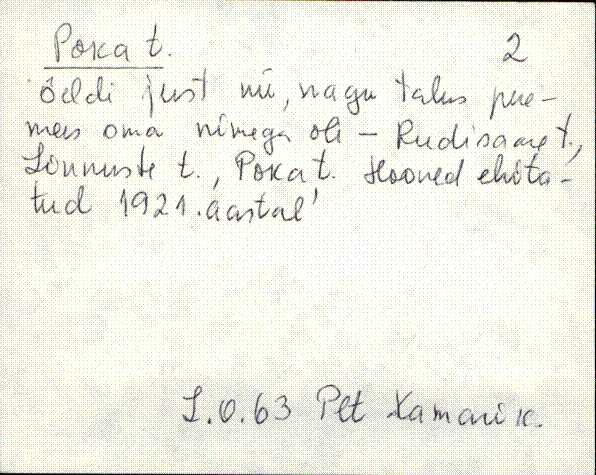 Poka t. 2
öeldi just nii, nagu talus pere-
mees oma nimega oli – Rudisaare t.,
Lõnnuste t., Poka t. Hooned ehita-
tud 1921. aastal'
L.O.63 Plt Kamarik.